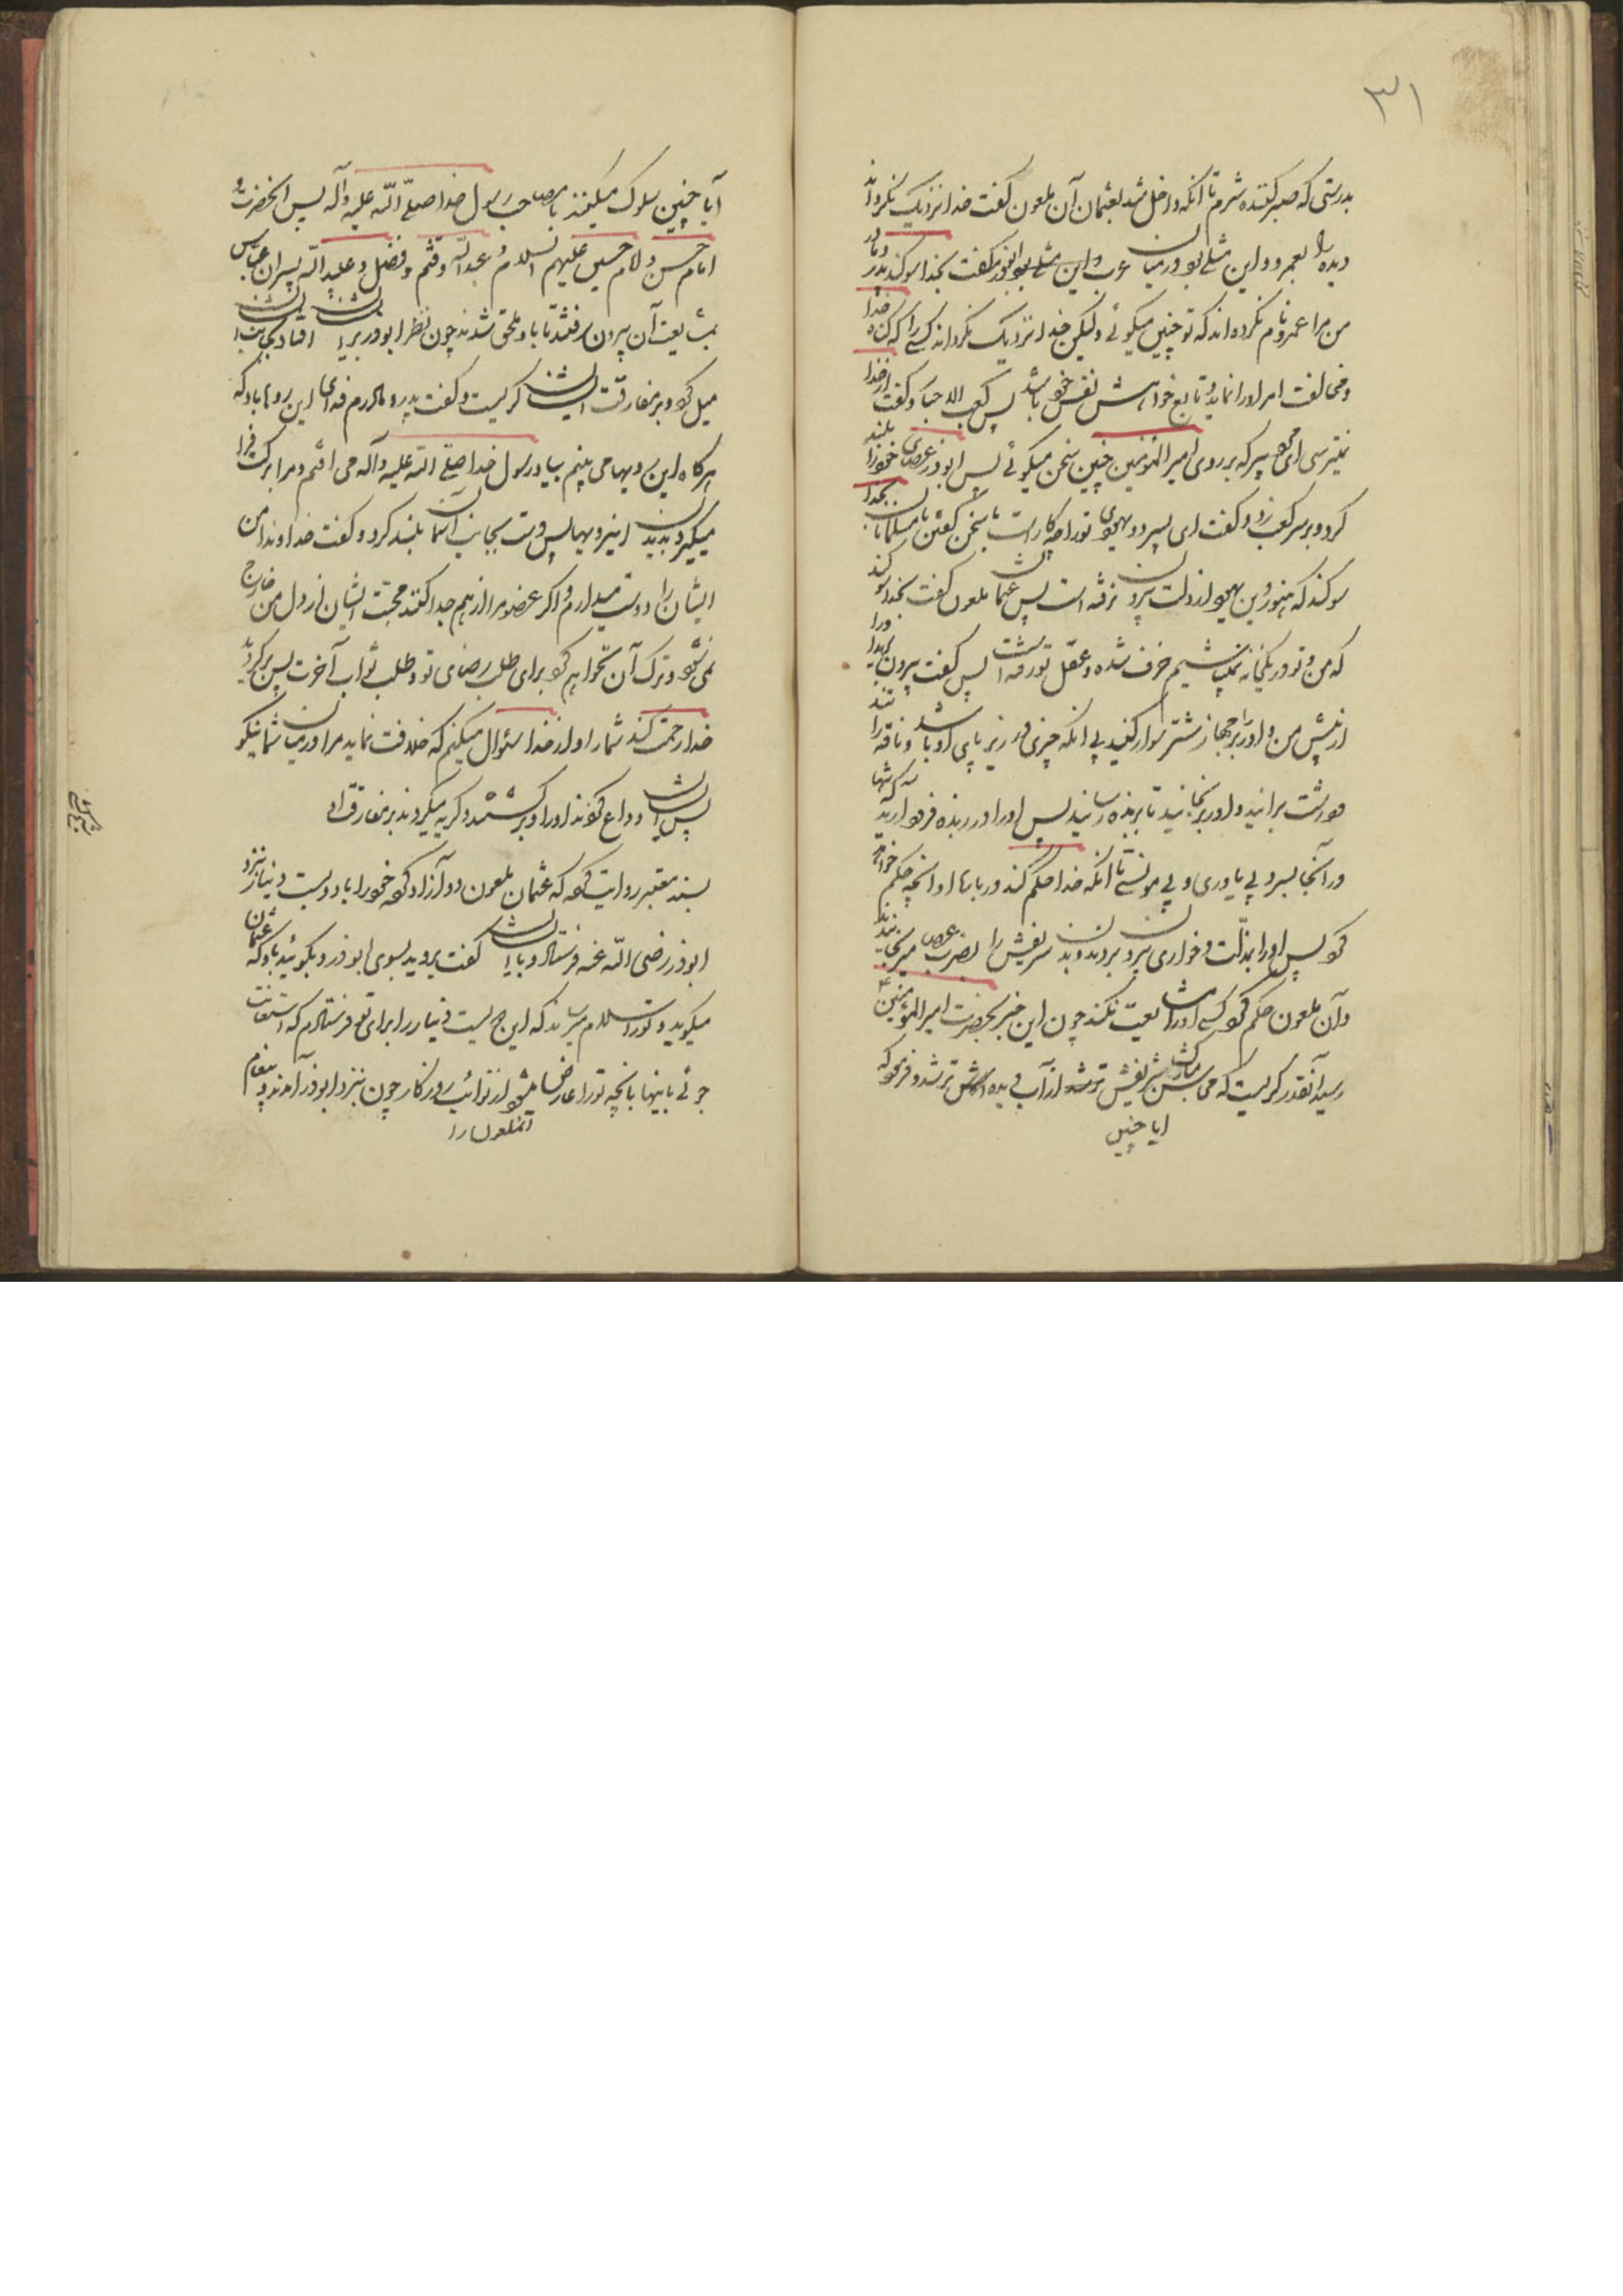 ۳۱
بدرستی که صبر کننده شرم تا آنکه داخل شد بعثمان آن ملعون گفت خدا نزدیک نگرداند
دیده را بعمرو و این مثلی بود در میان عرب ابوذر گفت بخدا سوکند پدر و مادر
من مرا عمرو نام نکرده اند که تو چنین میکوئی ولیکن خدا نزدیک نکرداند کسی را که کناه خدا
و مخالفت امر او را نماید و تابع خواهش نفس خود باشد پس کعب الاحبار گفت از خدا
نمیترسی ای مرد پیر که بر روی امیر المؤمنین چنین سخن میکوئی پس ابوذر عصای خود را بلند
کرد و بر سر کعب زد و گفت ای پسر دو یهودی تو را چه کار است با سخن گفتن با مسلمانان بخدا
سوکند که هنوز دین یهود از دلت بیرون نرفته است پس عثمان ملعون گفت بخدا سوکند
که من و تو در یکخانه نمیباشیم خرف شده و عقل تو رفته است پس گفت بیرون برید او را
از پیش من و او را بر جهاز شتر سوار کنید بی آنکه چیزی در زیر پای او باشد و ناقه را
درشت برانید و او را برنجانید تا بربذه رسانید پس او را در ربذه فرود آرید که تنها
در آنجا بسر برد بی یاوری و بی مونسی تا آنکه خدا حکم کند در باب او آنچه حکم خواهد
کرد پس او را بمذلت و خواری بیرون بردند و بدن شریفش را بضرب عصا میرنجانیدند
و آن ملعون حکم کرد کسی او را مشایعت نکند چون این خبر بحضرت امیر المؤمنین ع
رسید آنقدر گریست که محاسن شریفش از آب دیده اش تر شد و فرمود که
ایا چنین
آیا چنین سلوک میکنند با مصاحب رسول خدا صلی الله علیه و آله پس آنحضرت و
امام حسن و امام حسین علیهم السلام و عبدالله و قثم و فضل و عبید الله پسران عباس
بمشایعت آن بیرون رفتند تا باو ملحق شدند چون نظر ابوذر بر ایشان افتاد بجانب ایشان
میل کرد و بر مفارقت ایشان گریست و گفت پدر و مادرم فدای این روها باد که
هرگاه این رویها می بینم بیاد رسول خدا صلی الله علیه و آله می افتم و مرا برکت فرا
میگیرد بدیدن اینرویها پس دست بجانب آسمان بلند کرد و گفت خداوندا من
ایشان را دوست میدارم و اگر عضو مرا از هم جدا کنند محبت ایشان از دل من خارج
نمی شود و ترک آن نخواهم کرد برای طلب رضای تو و طلب ثواب آخرت پس برگردید
خدا رحمت کند شما را و از خدا سئوال میکنم که خلافت نماید مرا در میان شما نیکو
پس ایشان وداع کردند او را و برگشتند و گریه میکردند بر مفارقت او
بسند معتبر روایت کرده که عثمان ملعون دو آزاد کرده خود را با دویست دینار نزد
ابوذر رضی الله عنه فرستاد و بایشان گفت بروید بسوی ابوذر و بگوئید باو که عثمان
میگوید و تو را سلام میرساند که این دویست دینار را برای تو فرستادم که استعانت
جوئی باینها بآنچه تو را عارض میشود از نوائب روزگار چون بنزد ابوذر آمدند و پیغام
آنملعون را